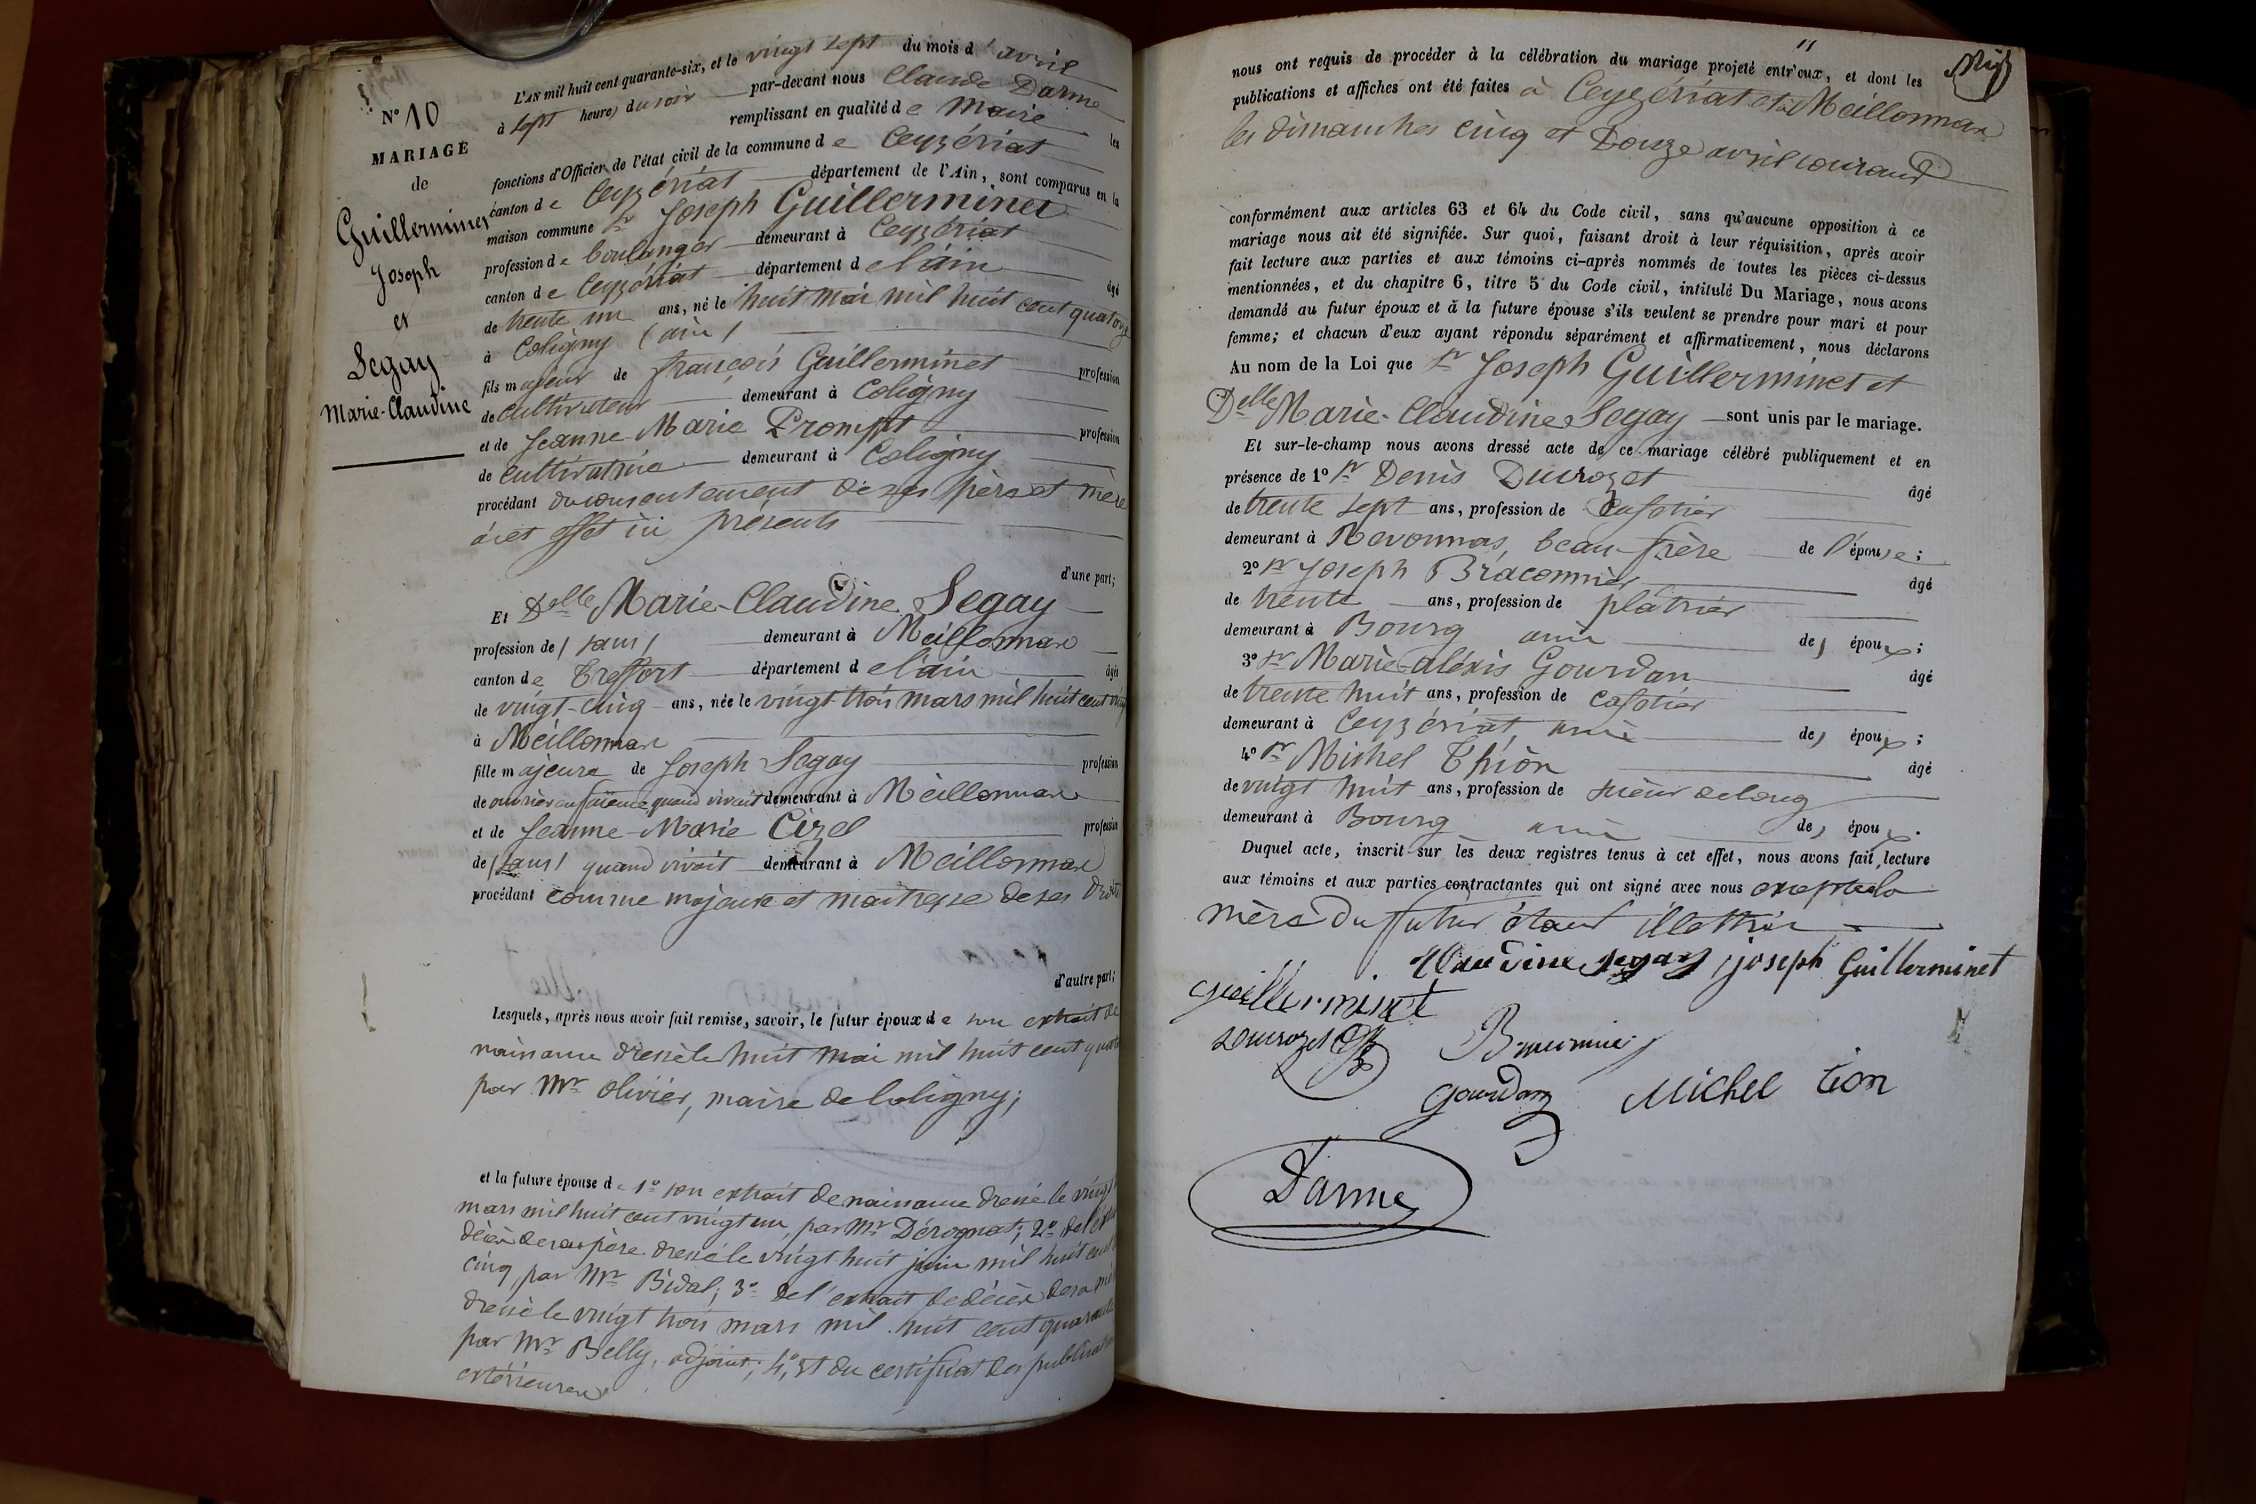 N° 10
MARIAGE
de
Guillerminet
Joseph
et
Segay
Marie-Claudine
L'AN mil huit cent quarante-six, et le vingt sept du mois d'avril
à sept heures du soir par-devant nous Claude Darme
remplissant en qualité de Maire les
fonctions d'Officier de l'état civil de la commune de Ceyzériat
canton de Ceyzériat département de l'Ain, sont comparus en la
maison commune Sr Joseph Guillerminet
profession de boulanger demeurant à Ceyzériat
canton de Ceyzériat département de l'ain âgé
de trente un ans, né le huit mai mil huit cent quatorze
à Coligny (ain)
fils majeur de françois Guillerminet profession
de cultivateur demeurant à Coligny
et de Jeanne-Marie Prompt profession
de cultivatrice demeurant à Coligny
procédant du consentement de ses père et mère
à cet effet ici présents
d'une part;
Et Delle Marie-Claudine Segay
profession de (sans) demeurant à Meillonnas
canton de Treffort département de l'ain âgée
de vingt-cinq ans, née le vingt trois mars mil huit cent vingt
à Meillonnas
fille majeure de Joseph Segay profession
de ouvrier en faïence quand vivait demeurant à Meillonnas
et de Jeanne-Marie Cizel profession
de (sans) quand vivait demeurant à Meillonnas
procédant comme majeure et maitresse de ses droits
d'autre part;
Lesquels, après nous avoir fait remise, savoir, le futur époux de son extrait de
naissance dressé le huit mai mil huit cent quatorze
par Mr Olivier, maire de Coligny;
et la future épouse de 1° son extrait de naissance dressé le vingt
mars mil huit cent vingt un, par Mr Dérognat; 2° de l'extrait
décès de son père dressé le vingt huit juin mil huit cent
cinq, par Mr Bidal; 3° de l'extrait de décès de sa mère
dressé le vingt trois mars mil huit cent quarante
par Mr Belly, adjoint; 4° et du certificat des publications
extérieures
11
nous ont requis de procéder à la célébration du mariage projeté entr'eux, et dont les
publications et affiches ont été faites à Ceyzériat et à Meillonnas
les dimanches cinq et Douze avril courant
conformément aux articles 63 et 64 du Code civil, sans qu'aucune opposition à ce
mariage nous ait été signifiée. Sur quoi, faisant droit à leur réquisition, après avoir
fait lecture aux parties et aux témoins ci-après nommés de toutes les pièces ci-dessus
mentionnées, et du chapitre 6, titre 5 du Code civil, intitulé Du Mariage, nous avons
demandé au futur époux et à la future épouse s'ils veulent se prendre pour mari et pour
femme; et chacun d'eux ayant répondu séparément et affirmativement, nous déclarons
Au nom de la Loi que Sr Joseph Guillerminet et
Delle Marie-Claudine Segay sont unis par le mariage.
Et sur-le-champ nous avons dressé acte de ce mariage célébré publiquement et en
présence de 1° Sr Denis Ducrozet âgé
de trente sept ans, profession de cafetier
demeurant à Revonnas, beau-frère de l'épouse;
2° Sr Joseph Braconnier âgé
de trente ans, profession de plâtrier
demeurant à Bourg ami des époux;
3° Sr Marie-alexis Gourdan âgé
de trente huit ans, profession de cafetier
demeurant à Ceyzériat, ami des époux;
4° Sr Michel Thion âgé
de vingt huit ans, profession de scieur de long
demeurant à Bourg ami des époux.
Duquel acte, inscrit sur les deux registres tenus à cet effet, nous avons fait lecture
aux témoins et aux parties contractantes qui ont signé avec nous excepté la
mère du futur étant illettrée
Claudine segay joseph Guillerminet
Guillerminet
Ducrozet
Gourdan Michel tion
Darme